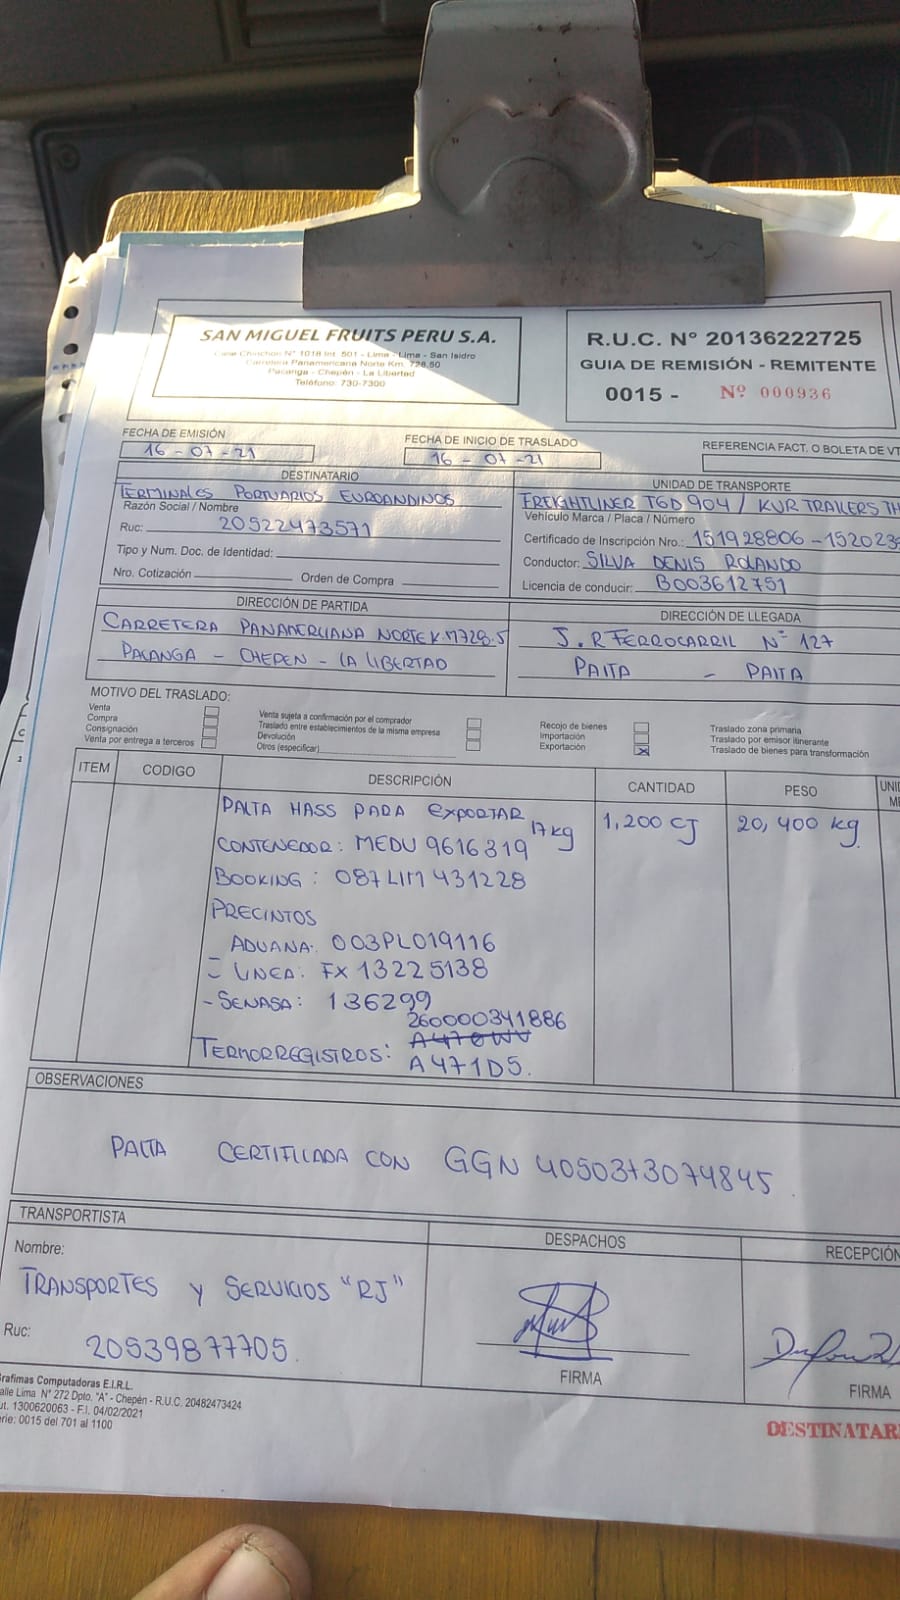 SAN MIGUEL FRUITS PERU S.A.
Calle Chinchon N° 1018 Int. 501 - Lima - Lima - San Isidro
Carretera Panamericana Norte Km. 728.50
Pacanga - Chepén - La Libertad
Teléfono: 730-7300
R.U.C. N° 20136222725
GUIA DE REMISIÓN - REMITENTE
0015 - Nº 000936
FECHA DE EMISIÓN
16 - 07 - 21
FECHA DE INICIO DE TRASLADO
16 - 07 - 21
REFERENCIA FACT. O BOLETA DE VT
DESTINATARIO
TERMINALES PORTUARIOS EUROANDINOS
Razón Social / Nombre
Ruc: 20522473571
Tipo y Num. Doc. de Identidad:
Nro. Cotización Orden de Compra
UNIDAD DE TRANSPORTE
FREIGHTLINER TGD 904 / KUR TRAILERS TH
Vehículo Marca / Placa / Número
Certificado de Inscripción Nro.: 151928806 - 152023
Conductor: SILVA DENIS ROLANDO
Licencia de conducir: B003612751
DIRECCIÓN DE PARTIDA
CARRETERA PANAMERICANA NORTE K.M728.5
PACANGA - CHEPEN - LA LIBERTAD
DIRECCIÓN DE LLEGADA
J.R FERROCARRIL N° 127
PAITA - PAITA
MOTIVO DEL TRASLADO:
Venta
Compra
Consignación
Venta por entrega a terceros
Venta sujeta a confirmación por el comprador
Traslado entre establecimientos de la misma empresa
Devolución
Otros (especificar)
Recojo de bienes
Importación
Exportación X
Traslado zona primaria
Traslado por emisor itinerante
Traslado de bienes para transformación
ITEM CODIGO DESCRIPCIÓN CANTIDAD PESO UNI
ME
PALTA HASS PARA EXPORTAR 17kg 1,200 CJ 20,400 kg
CONTENEDOR: MEDU 9616319
BOOKING : 087LIM431228
PRECINTOS
ADUANA: 003PL019116
- LINEA: FX 13225138
- SENASA: 136299
260000341886
TERMORREGISTROS:
A471D5.
OBSERVACIONES
PALTA CERTIFICADA CON GGN 4050373074845.
TRANSPORTISTA
Nombre:
TRANSPORTES y SERVICIOS "RJ"
Ruc: 20539877705.
DESPACHOS
FIRMA
RECEPCIÓN
FIRMA
Grafimas Computadoras E.I.R.L.
alle Lima N° 272 Dpto. "A" - Chepén - R.U.C. 20482473424
ut. 1300620063 - F.I. 04/02/2021
erie: 0015 del 701 al 1100
DESTINATAR